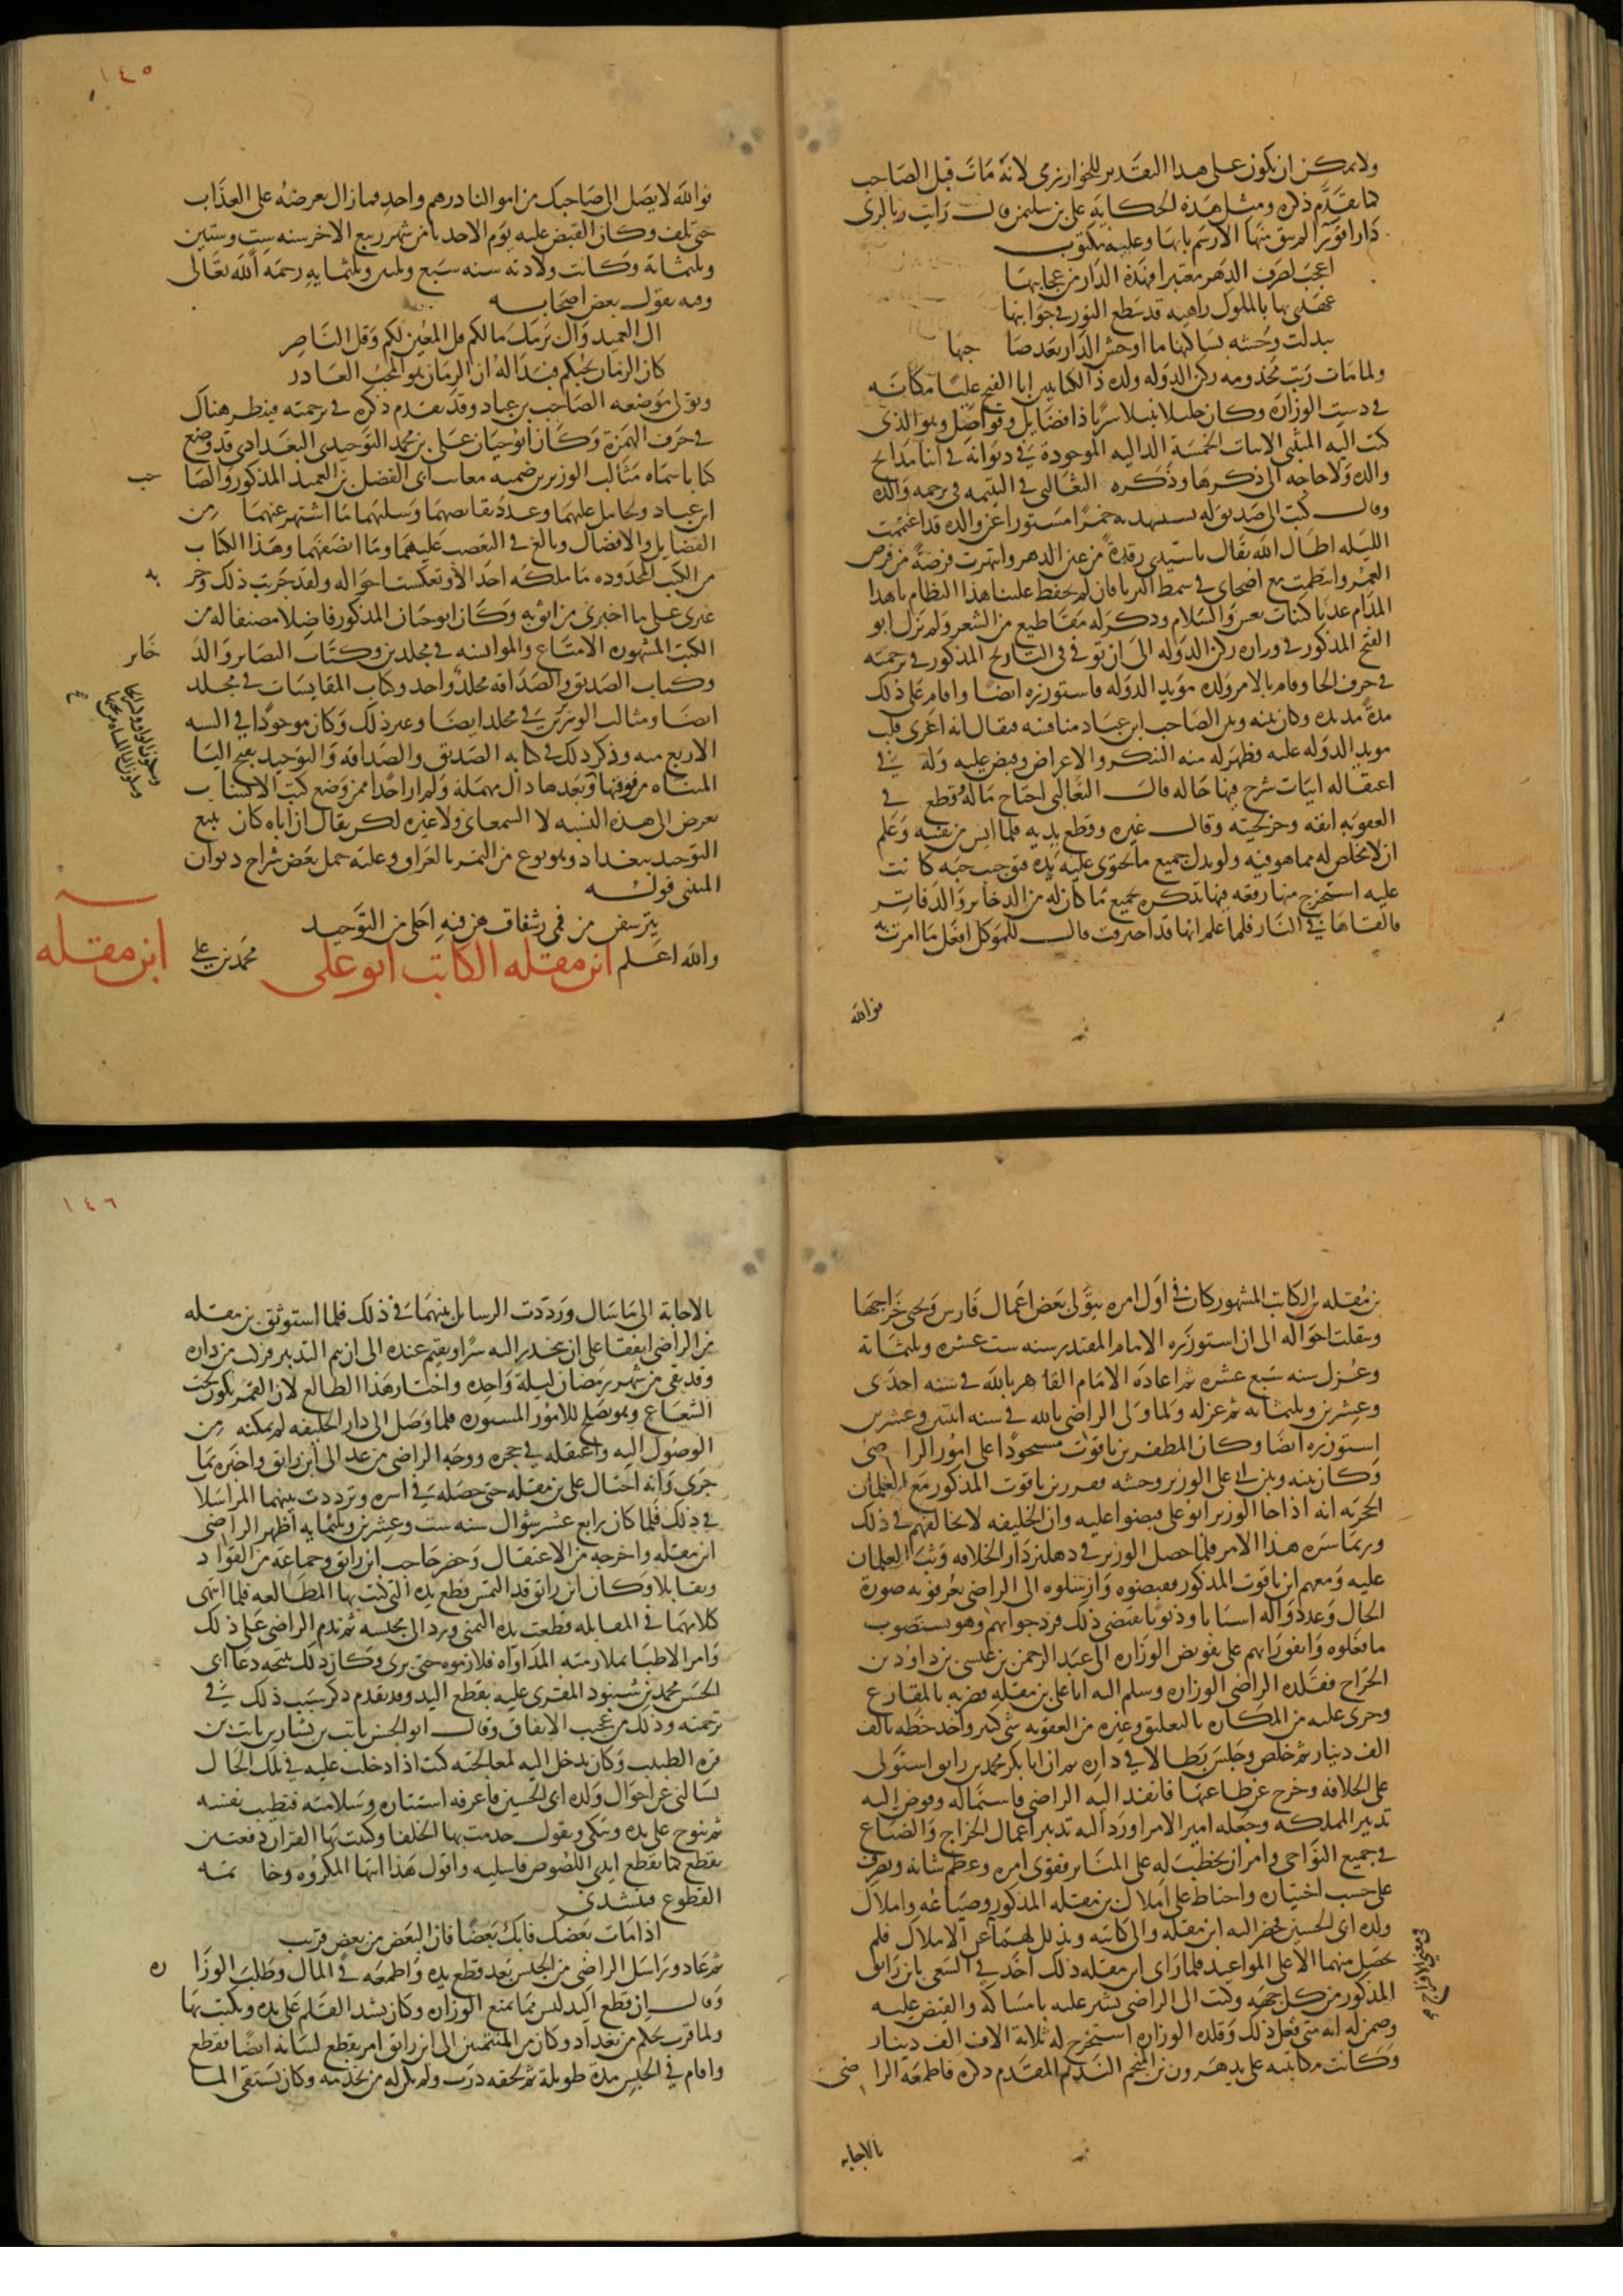 ولا يمكن ان يكون على هذا التقدير للخوارزمي لانه مات قبل الصاحب
كما تقدم ذكره ومثل هذه الحكاية على بن سليمن قال رايت بالرى
دارا قويرا لم يبق منها الا رسم بابها وعليه مكتوب
اعجب لصرف الدهر معتبرا فهذه الدار من عجابها
عهدى بها بالملوك زاهيه قد سطع النور فى جوانبها
تبدلت وحشه بساكنها ما اوحش الدار بعد صا جبها
ولما مات رتب مخدومه ركن الدوله ولده ذا الكفايتين ابا الفتح علىا مكانه
فى دست الوزارة وكان جليلا نبيلا سريا ذا فضايل وفواضل وهو الذى
كتب اليه المتنبى الابيات الخمسة الداليه الموجودة فى ديوانه فى اثنا مدايح
والده ولا حاجه الى ذكرها وذكره الثعالبى فى اليتيمه فى ترجمه والده
وقال كتب الى صديق له يستهديه خمرا مستورا عن والده قد اغتنمت
الليله اطال الله بقاك يا سيدى رقدة من عين الدهر وانتهزت فرصة من فرص
العمر وانتظمت مع اصحابى فى سمط الثريا فان لم تحفظ علينا هذا النظام باهدا
المدام عدنا كبنات نعش والسلام وذكر له مقاطيع من الشعر ولم يزل ابو
الفتح المذكور فى وزارة ركن الدوله الى ان توفى فى التاريخ المذكور فى ترجمته
فى حرف الحا وقام بالامر ولده مويد الدوله فاستوزره ايضا واقام على ذلك
مدة مديده وكان بينه وبين الصاحب ابن عباد منافسه فيقال انه اغرى قلب
مويد الدوله عليه فظهر له منه التنكر والاعراض وقبض عليه وله فى
اعتقاله ابيات شرح فيها حاله قال الثعالبى اجتاح ماله وقطع فى
العقوبه انفه وجز لحيته وقال غيره وقطع يديه فلما ايس من نفسه وعلم
ان لا مخلص له مما هو فيه ولو بذل جميع ما تحتوى عليه يده فتق جيب جبه كانت
عليه استخرج منها رقعه فيها تذكره بجميع ما كان له من الذخاير والدفاين
فالقاها فى النار فلما علم انها قد احترقت قال للموكل افعل ما امرت به
فوالله
١٤٥
فوالله لا يصل الى صاحبك من اموالنا درهم واحد فما زال يعرضه على العذاب
حتى تلف وكان القبض عليه يوم الاحد ثامن شهر ربيع الاخر سنه ست وستين
وثلثمائة وكانت ولادته سنه سبع وثلثين وثلثمايه رحمه الله تعالى
وفيه يقول بعض اصحابه
ال العميد وال برمك مالكم قل المعين لكم وقل الناصر
كان الزمان يحبكم فبدا له ان الزمان هو المحب الغادر
وتولى موضعه الصاحب بن عباد وقد تقدم ذكره فى ترجمته فينظر هناك
فى حرف الهمزة وكان ابو حيان على بن محمد التوحيدى البغدادى قد وضع
كتابا سماه مثالب الوزيرين ضمنه معايب ابى الفضل بن العميد المذكور والصا حب
ابن عباد وتحامل عليهما وعدد نقايصهما وسلبهما ما اشتهر عنهما من
الفضايل والافضال وبالغ فى التعصب عليهما وما انصفهما وهذا الكتاب
من الكتب المحدوده ما ملكه احد الا وتعكست احواله ولقد جربت ذلك وجر به
غيرى على ما اخبرنى من اثق به وكان ابو حيان المذكور فاضلا مصنفا له من
الكتب المشهوره الامتاع والموانسه فى مجلدين وكتاب البصاير والذ خاير
وكتاب الصديق والصداقه مجلد واحد وكتاب المقابسات فى مجلد
ايضا ومثالب الوزيرين فى مجلد ايضا وغير ذلك وكان موجودا فى السنه
الاربع ميه وذكر ذلك فى كتابه الصديق والصداقه والتوحيدى بفتح التا
المثناه من فوقها وبعدها دال مهملة ولم ار احدا ممن وضع كتب الانساب
تعرض الى هذه النسبه لا السمعانى ولا غيره لكن يقال ان اباه كان يبيع
التوحيد ببغداد وهو نوع من التمر بالعراق وعليه حمل بعض شراح ديوان
المتنبى قوله
يترشفن من فمى رشفات هن فيه احلى من التوحيد
والله اعلم ابن مقله الكاتب ابو على محمد بن على
ابن مقله
بن مقله بن الكاتب المشهور كان فى اول امره يتولى بعض اعمال فارس ويجبى خراجها
وتنقلت احواله الى ان استوزره الامام المقتدر سنه ست عشره وثلثمائة
وعزل سنه سبع عشره ثم اعاده الامام القاهر بالله فى سنه احدى
وعشرين وثلثمائه ثم عزله ولما ولى الراضى بالله فى سنه اثنتين وعشرين
استوزره ايضا وكان المظفر بن ياقوت مستحوذا على امور الرا ضى
وكان بينه وبين ابى على الوزير وحشه فقرر بن ياقوت المذكور مع الغلمان
الحجريه انه اذا جا الوزير ابو على قبضوا عليه وان الخليفه لا يخالفهم فى ذلك
وربما سره هذا الامر فلما حصل الوزير فى دهليز دار الخلافه وثب الغلمان
عليه ومعهم ابن ياقوت المذكور فقبضوه وارسلوه الى الراضى يعرفونه صورة
الحال وعددوا له اسبابا وذنوبا تقتضى ذلك فرد جوابهم وهو يستصوب
ما فعلوه واتفق رايهم على تفويض الوزاره الى عبد الرحمن بن عيسى بن داود بن
الجراح فقلده الراضى الوزاره وسلم اليه ابا على بن مقله فضربه بالمقارع
وجرى عليه من المكاره بالتعليق وغيره من العقوبه شى كثير واخذ خطه بالف
الف دينار ثم خلص وجلس بطالا فى داره ثم ان ابا بكر محمد بن رايق استولى
على الخلافه وخرج عن طاعتها فانفذ اليه الراضى فاستماله وفوض اليه
تدبير المملكه وجعله امير الامرا ورد اليه تدبير اعمال الخراج والضياع
فى جميع النواحى وامر ان يخطب له على المنابر فقوى امره وعظم شانه وتصرف
على حسب اختياره واحتاط على املاك بن مقله المذكور وضياعه واملاك
ولده ابى الحسين فحضر اليه ابن مقله والى كاتبه وتذلل لهما عن الاملاك فلم
يحصل منهما الا على المواعيد فلما راى ابن مقله ذلك اخذ فى السعى بابن رايق
المذكور من كل جهه وكتب الى الراضى يشير عليه بامساكه والقبض عليه
وضمن له انه متى فعل ذلك وقلده الوزاره استخرج له ثلاثة الاف الف دينار
وكانت مكاتبته على يد هرون بن المنجم النديم المقدم ذكره فاطمعه الرا ضى
بالاجابه
١٤٦
بالاجابة الى ما سال وترددت الرسايل بينهما فى ذلك فلما استوثق بن مقله
من الراضى اتفقا على ان ينحدر اليه سرا ويقيم عنده الى ان يتم التدبير فركب من داره
وقد بقى من شهر رمضان ليلة واحده واختار هذا الطالع لان القمر يكون تحت
الشعاع وهو يصلح للامور المستوره فلما وصل الى دار الخليفه لم يمكنه من
الوصول اليه واعتقله فى حجره ووجه الراضى من غد الى ابن رايق واخبره بما
جرى وانه احتال على بن مقله حتى حصله فى اسره وترددت بينهما المراسلا
فى ذلك فلما كان رابع عشر شوال سنه ست وعشرين وثلثمايه اظهر الراضى
ابن مقله واخرجه من الاعتقال وحضر حاجب ابن رايق وجماعة من القواد
وتقابلا وكان ابن رايق قد التمس قطع يده التى كتب بها المطالعه فلما انتهى
كلامهما فى المقابله قطعت يده اليمنى ورد الى مجلسه ثم ندم الراضى على ذلك
وامر الاطبا بملازمته المداواه فلازموه حتى برى وكان ذلك نتيجه دعا ابى
الحسن محمد بن شنبوذ المقرى عليه بقطع اليد وقد تقدم ذكر سبب ذلك فى
ترجمته وذلك من عجيب الاتفاق وقال ابو الحسن ثابت بن سنان بن ثابت بن
قره الطبيب وكان يدخل اليه لمعالجته كنت اذا دخلت عليه فى تلك الحال
يسالنى عن احوال ولده ابى الحسين فاعرفه استتاره وسلامته فتطيب نفسه
ثم ينوح على يده ويبكى ويقول خدمت بها الخلفا وكتبت بها القران دفعتين
تقطع كما تقطع ايدى اللصوص فاسليه واقول هذا انتها المكروه وخا تمه
القطوع فينشدنى
اذا مات بعضك فابك بعضا فان البعض من بعض قريب
ثم عاد وراسل الراضى من الحبس بعد قطع يده واطمعه فى المال وطلب الوزا ره
وقال ان قطع اليد ليس مما يمنع الوزاره وكان يشد القلم على يده ويكتب بها
ولما قرب بجكم من بغداد وكان من المنتمين الى ابن رايق امر بقطع لسانه ايضا فقطع
واقام فى الحبس مدة طويلة ثم لحقه ذرب ولم يكن له من يخدمه وكان يستقى الما